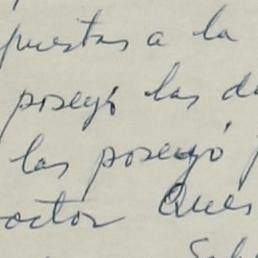 puestas a la
poseyó las d
las poseyó
octor Ques